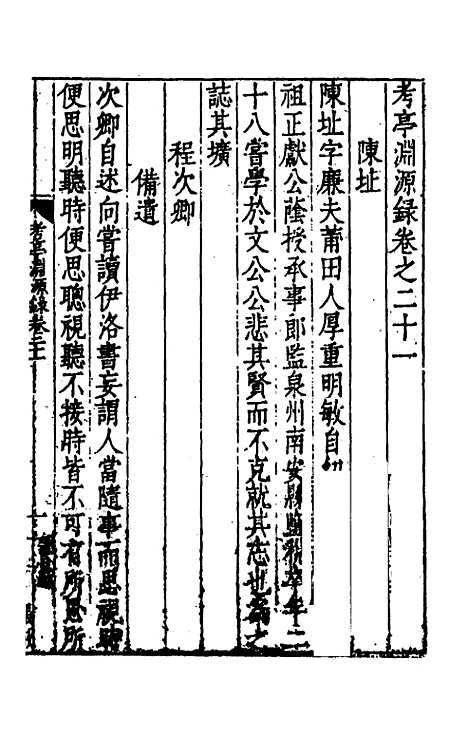 考亭淵源録卷之二十一
陳址
陳址字廉夫莆田人厚重明敏自幼
祖正獻公蔭授承事郎監泉州南安縣鹽稅卒年二
十八嘗學於文公公悲其賢而不克就其志也為之
誌其壙
程次卿
備遺
次卿自述向嘗讀伊洛書妄謂人當隨事而思視時
便思明聽時便思聰視聽不接時皆不可有所思所
考亭淵源録卷二十一